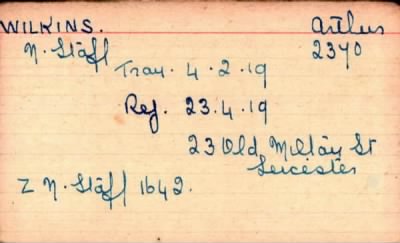 WILKINS. Arthur
N. Staff 2370
Tray. 4.2.19
Rej. 23.4.19
23 Old Milton St
Leicester
Z N. Staff 1642.